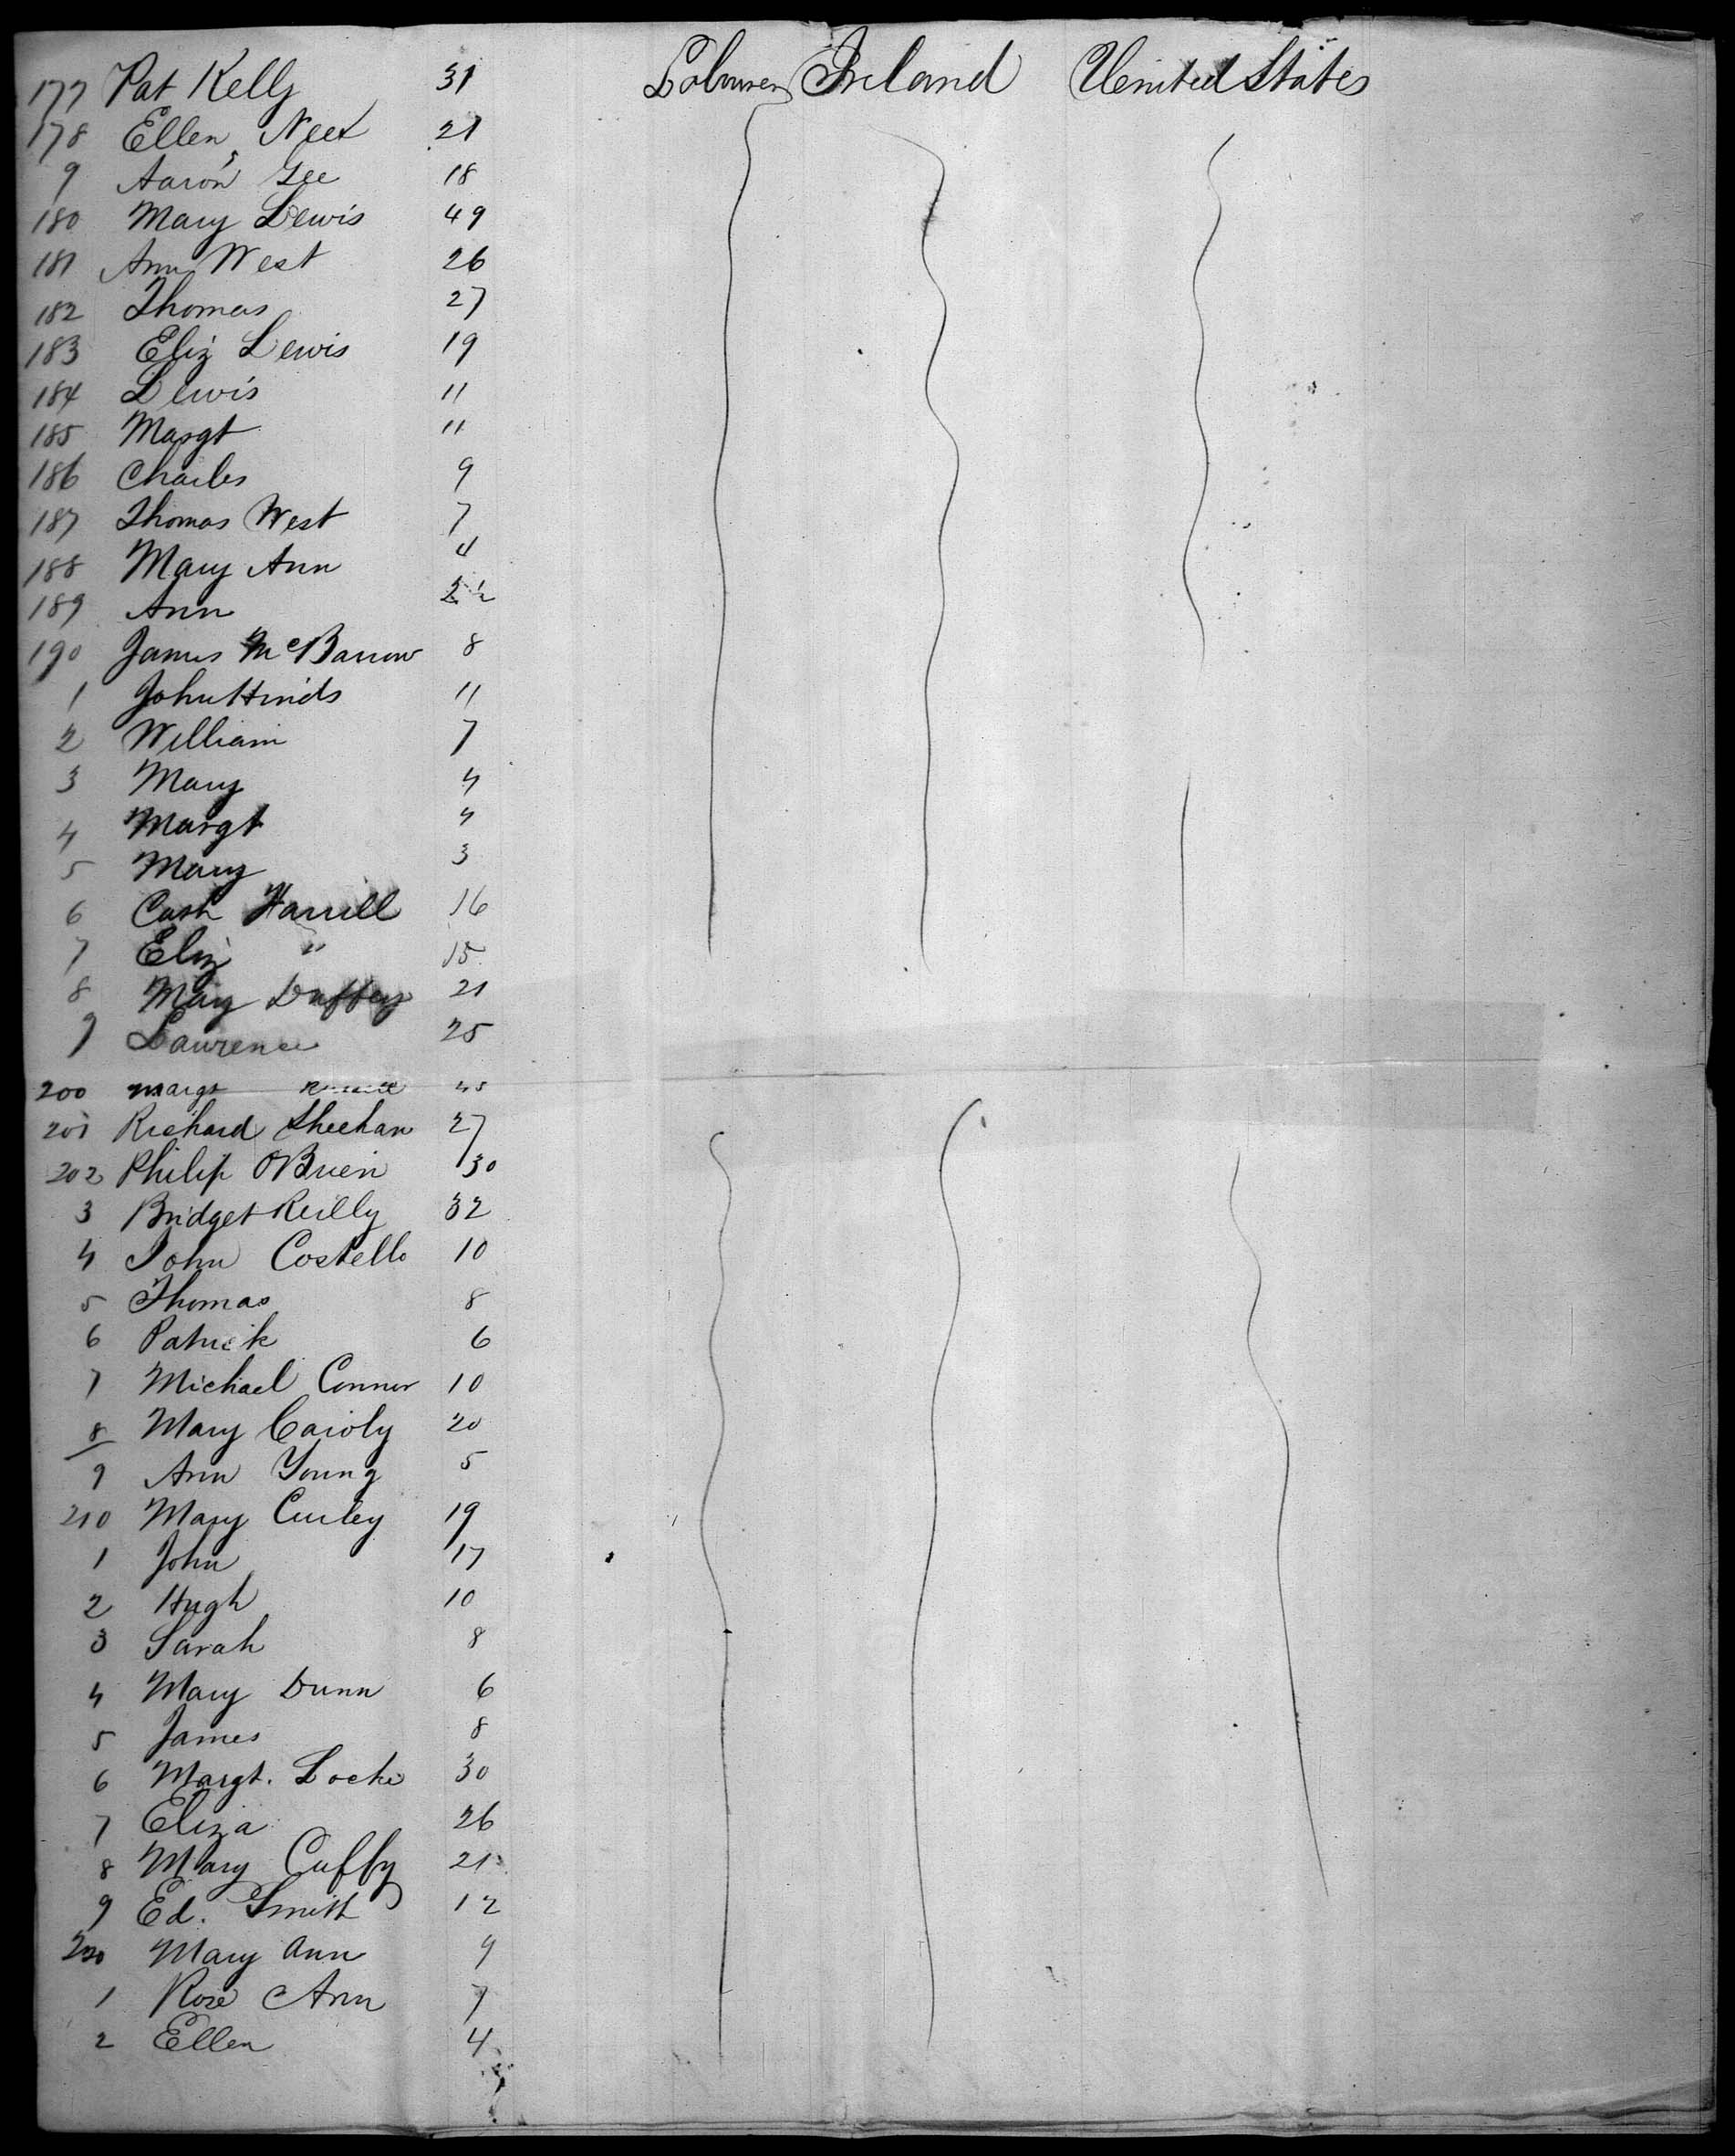 177 Pat Kelly 31 Labourer Ireland United States
178 Ellen Neet 21
9 Aaron Gee 18
180 Mary Lewis 49
181 Ann West 26
182 Thomas 27
183 Eliz Lewis 19
184 Lewis 11
185 Margt 11
186 Charles 9
187 Thomas West 7
188 Mary Ann 4
189 Ann 2½
190 James McBarron 8
1 John Hinds 11
2 William 7
3 Mary 4
4 Margt 4
5 Mary 3
6 Cath Harrill 16
7 Eliz " 15
8 Mary Duffey 21
9 Lawrence 25
200 Margt 45
201 Richard Sheehan 27
202 Philip OBrien 30
3 Bridget Reilly 32
4 John Costello 10
5 Thomas 8
6 Patrick 6
7 Michael Connor 10
8 Mary Caroly 20
9 Ann Young 5
210 Mary Curley 19
1 John 17
2 Hugh 10
3 Sarah 8
4 Mary Dunn 6
5 James 8
6 Margt. Locke 30
7 Eliza 26
8 Mary Cuffy 21
9 Ed. Smith 12
220 Mary Ann 9
1 Rose Ann 7
2 Ellen 4